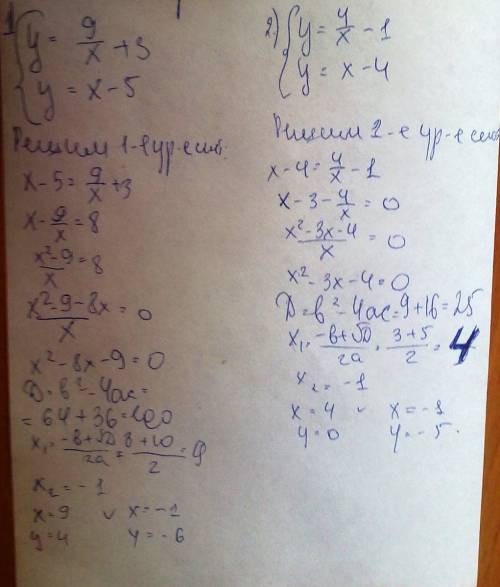 1
y = 9/x + 3
y = x - 5
Решим 1-е ур-е сист.
x - 5 = 9/x + 3
x - 9/x = 8
x² - 9/x = 8
x² - 9 - 8x/x = 0
x² - 8x - 9 = 0
D = b² - 4ac =
= 64 + 36 = 100
x₁ = -b + √D/2a = 8 + 10/2 = 9
x₂ = -1
x = 9 ∨ x = -1
y = 4 y = -6
2) y = 4/x - 1
y = x - 4
Решим 2-е ур-е сист
x - 4 = 4/x - 1
x - 3 - 4/x = 0
x² - 3x - 4/x = 0
x² - 3x - 4 = 0
D = b² - 4ac = 9 + 16 = 25
x₁ = -b + √D/2a = 3 + 5/2 = 4
x₂ = -1
x = 4 ∨ x = -1
y = 0 y = -5.